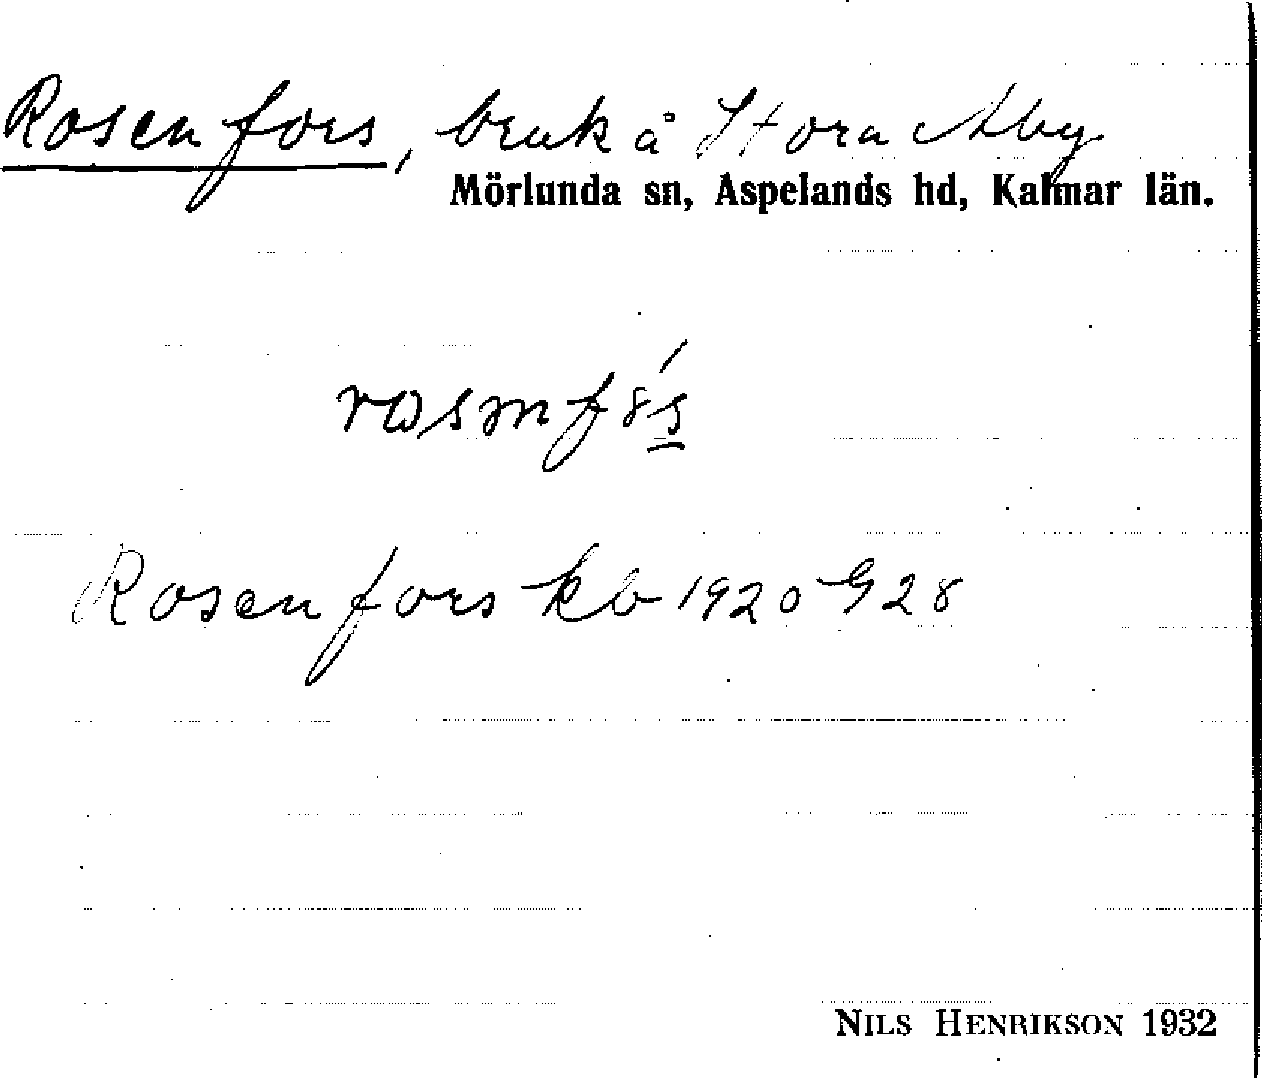 Rosenfors, bruk å Stora Aby
Mörlunda sn, Aspelands hd, Kalmar län.
Rosenfors kb 1920 G 28
NILS HENRIKSON 1932